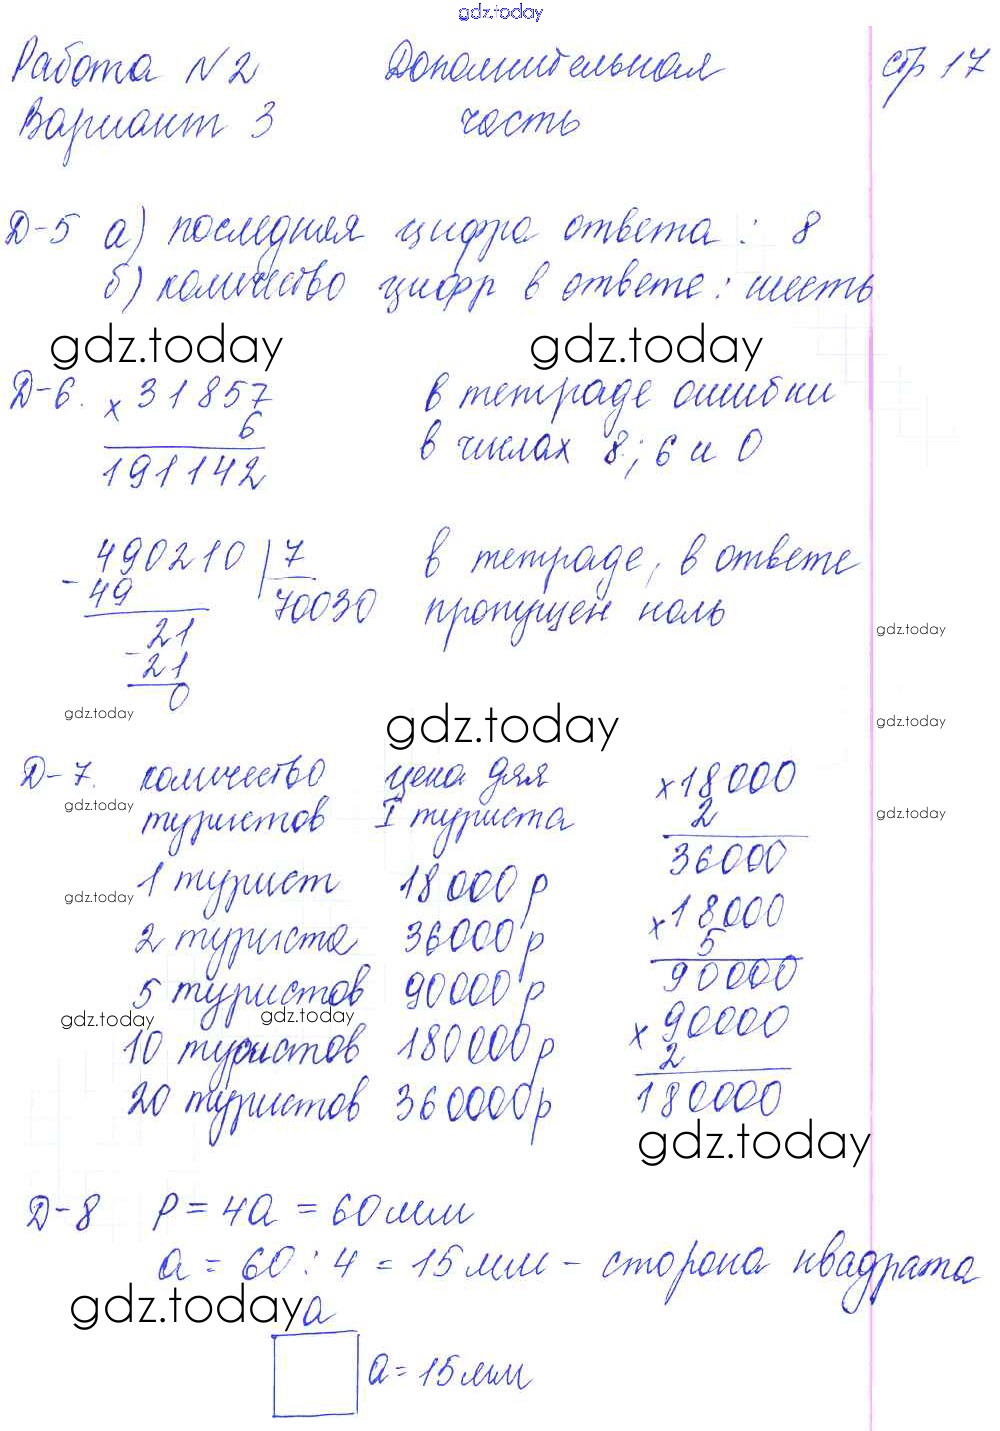 gdz.today
Работа №2 Дополнительная стр 17
Вариант 3 часть
Д-5 а) последняя цифра ответа : 8
б) количество цифр в ответе : шесть
gdz.today gdz.today
Д-6. х 31857 в тетраде ошибки
6 в числах 8; 6 и 0
191142
490210 | 7 в тетраде, в ответе
- 49 70030 пропущен ноль
21
gdz.today
- 21
0
gdz.today gdz.today gdz.today
Д-7. количество цена для х 18000
gdz.today туристов I туриста 2 gdz.today
36000
1 турист 18000 р
gdz.today х 18000
2 туриста 36000 р 5
5 туристов 90000 р 90000
gdz.today gdz.today х 90000
10 туристов 180000 р 2
20 туристов 360000 р 180000
gdz.today
Д-8 P = 4a = 60 мм
a = 60 : 4 = 15 мм – сторона квадрата
gdz.today a
a = 15 мм